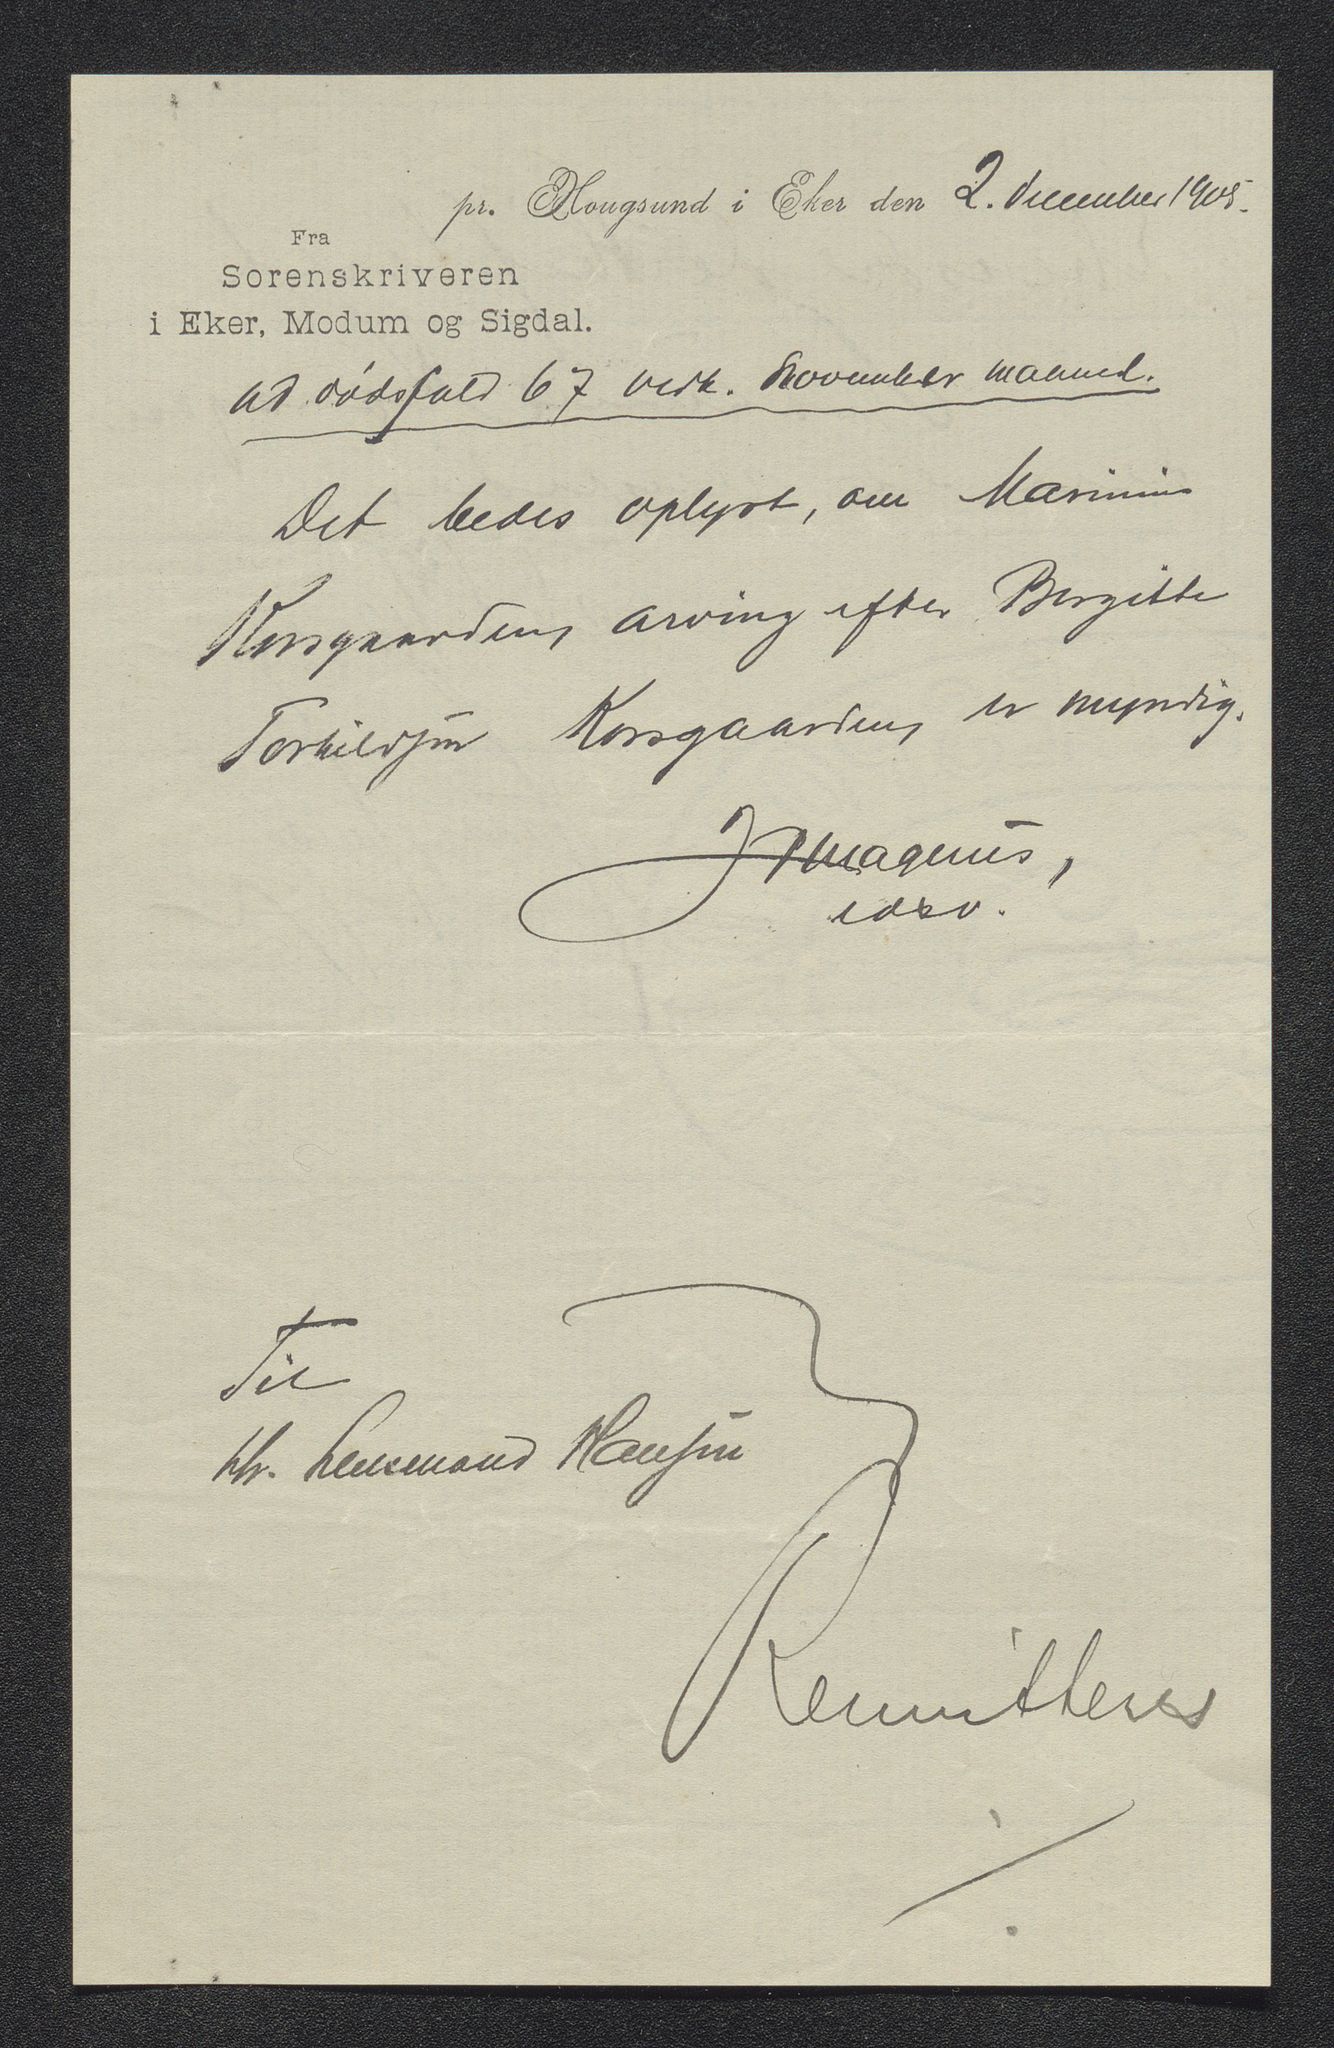 pr. Hougsund i Eker den 2. december 1905.
Fra
Sorenskriveren
i Eker, Modum og Sigdal.
ad dødsfald 67 vedk. November maaned.
Det bedes oplyst, om Marinius
Korsgaarden, arving efter Bergitte
Torkildsen Korsgaarden, er myndig.
J Magnus,
edsv.
Til
Hr. Lensmand Hansen
Remitteres